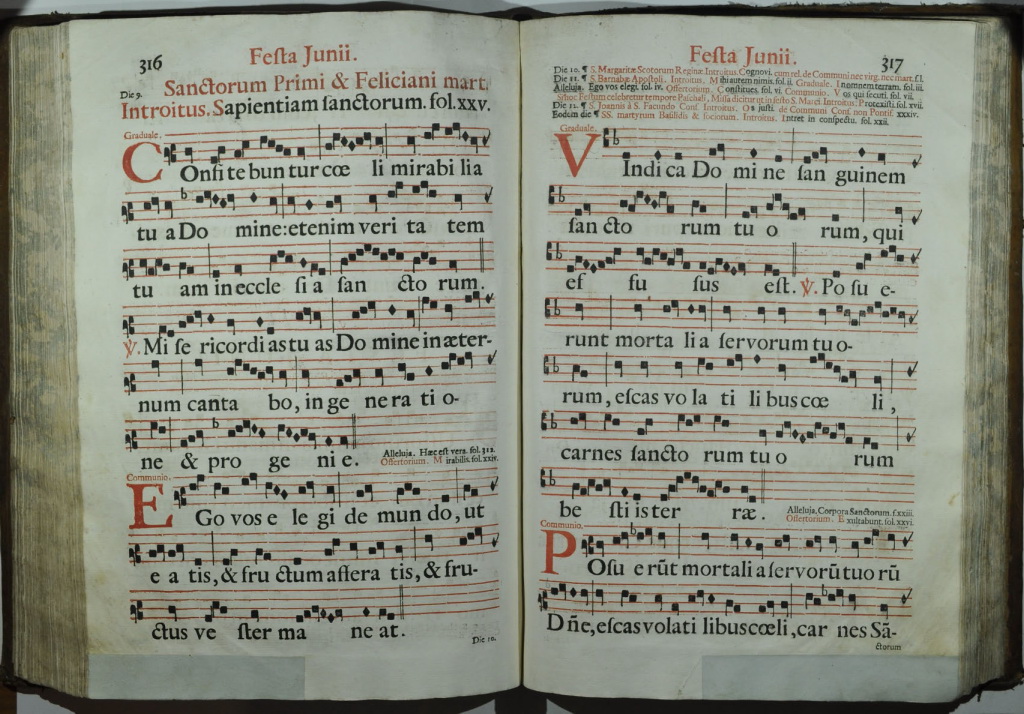 316
Festa Junii.
Die 9.
Sanctorum Primi & Feliciani mart.
Introitus. Sapientiam sanctorum. fol. xxv.
Graduale.
COnfi te bun tur cœ li mirabi lia
tu a Do mine: etenim veri ta tem
tu am in eccle si a san cto rum.
℣. Mi se ricordi as tu as Do mine in æter-
num canta bo, in ge ne ra ti o-
ne & pro ge ni e.
Alleluja. Hæc est vera. fol. 312.
Offertorium. Mirabilis. fol. xxiv.
Communio.
EGo vos e le gi de mun do, ut
e a tis, & fru ctum affera tis, & fru-
ctus ve ster ma ne at.
Die 10.
Festa Junii.
317
Die 10. ¶ S. Margaritæ Scotorum Reginæ Introitus Cognovi, cum rel. de Communi nec virg. nec mart. f. l.
Die 11. ¶ S. Barnabæ Apostoli. Introitus. Mihi autem nimis. fol. ii. Graduale. In omnem terram. fol. iii.
Alleluja. Ego vos elegi. fol. iv. Offertorium. Constitues. fol. vi. Communio. Vos qui secuti. fol. vii.
Si hoc Festum celebretur tempore Paschali, Missa dicitur ut in festo S. Marci. Introitus. Protexisti. fol. xvii.
Die 12. ¶ S. Joannis à S. Facundo Conf. Introitus. Os justi. de Communi Conf. non Pontif. xxxiv.
Eodem die ¶ SS. martyrum Basilidis & sociorum. Introitus. Intret in conspectu. fol. xxii.
Graduale.
VIndi ca Do mi ne san guinem
san cto rum tu o rum, qui
ef fu sus est. ℣. Po su e-
runt morta li a servorum tu o-
rum, escas vo la ti li bus cœ li,
carnes sancto rum tu o rum
be sti is ter ræ.
Alleluja. Corpora Sanctorum. f. xxiii.
Offertorium. Exultabunt. fol. xxvi.
Communio.
POsu e rūt mortali a servorū tuo rū
Dñe, escas volati libus cœli, car nes Sā-
ctorum